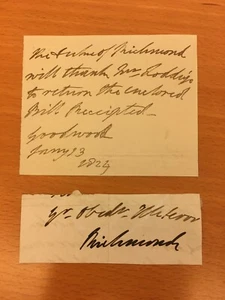 The Duke of Richmond
will thank Mr Loddige
to return the enclosed
Bill Receipted_
Goodwood
Jany 13
1824
yr. obedt.
Richmond